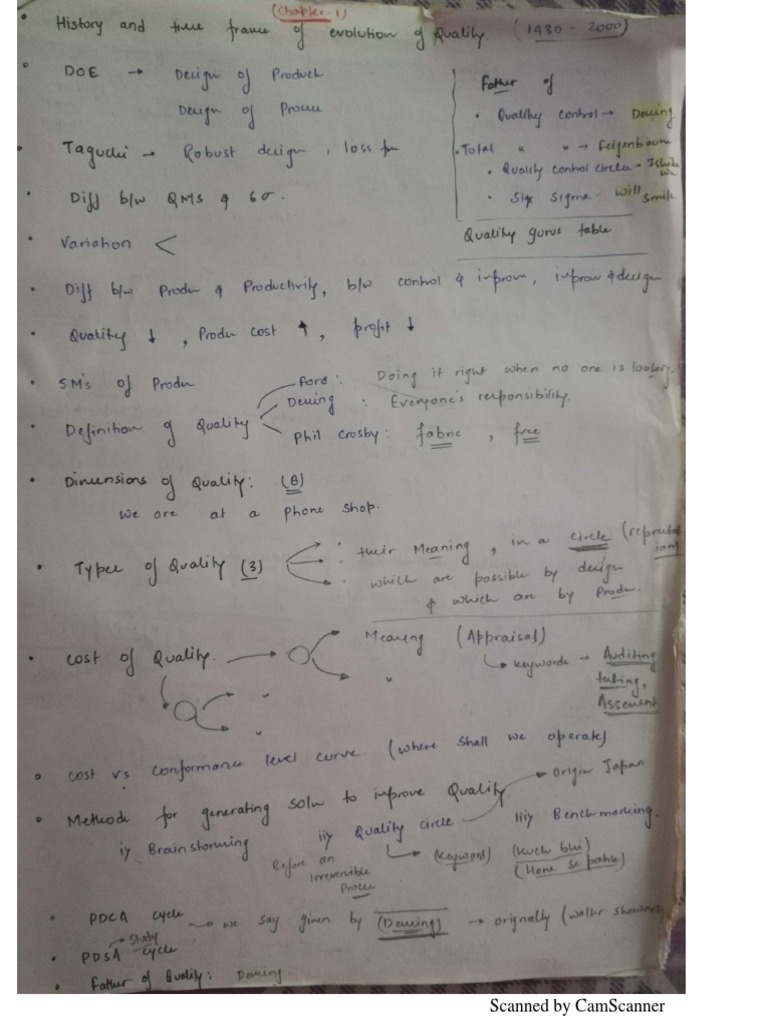 (Chapter-1)
• History and time frame of evolution of Quality. (1930 - 2000)
• DOE → Design of Product
Design of Process
• Taguchi → Robust design, loss fn
• Diff b/w QMS & 6σ.
• Variation <
Father of
• Quality control → Deming
• Total " " → Feigenbaum
• Quality control circle - Ishikawa
• Six Sigma - Will Smith
Quality gurus table
• Diff b/w Produn & Productivity, b/w control & improve, improve & design
• Quality ↓, Produn cost ↑, profit ↓
• 5M's of Produn
• Definition of Quality
Ford: Doing it right when no one is looking.
Deming: Everyone's responsibility.
Phil Crosby: fabric, free
• Dimensions of Quality: (8)
We are at a phone shop.
• Types of Quality (3)
: their Meaning, in a circle (representation)
: which are possible by design
& which are by Produn.
• Cost of Quality. → Meaning (Appraisal)
"
"
"
↳ keywords → Auditing
testing,
Assesment
• Cost vs Conformance level curve. (where shall we operate)
• Methods for generating soln to improve Quality
i) Brainstorming ii) Quality circle → Origin Japan iii) Benchmarking.
Before an
irreversible
Process
↳ (Keyword) (Kuch bhi)
(Hone se pahle)
• PDCA cycle → we say given by (Demings) → orignally (walter shewart)
• PDSA cycle → Study
• Father of Quality: Deming.
Scanned by CamScanner